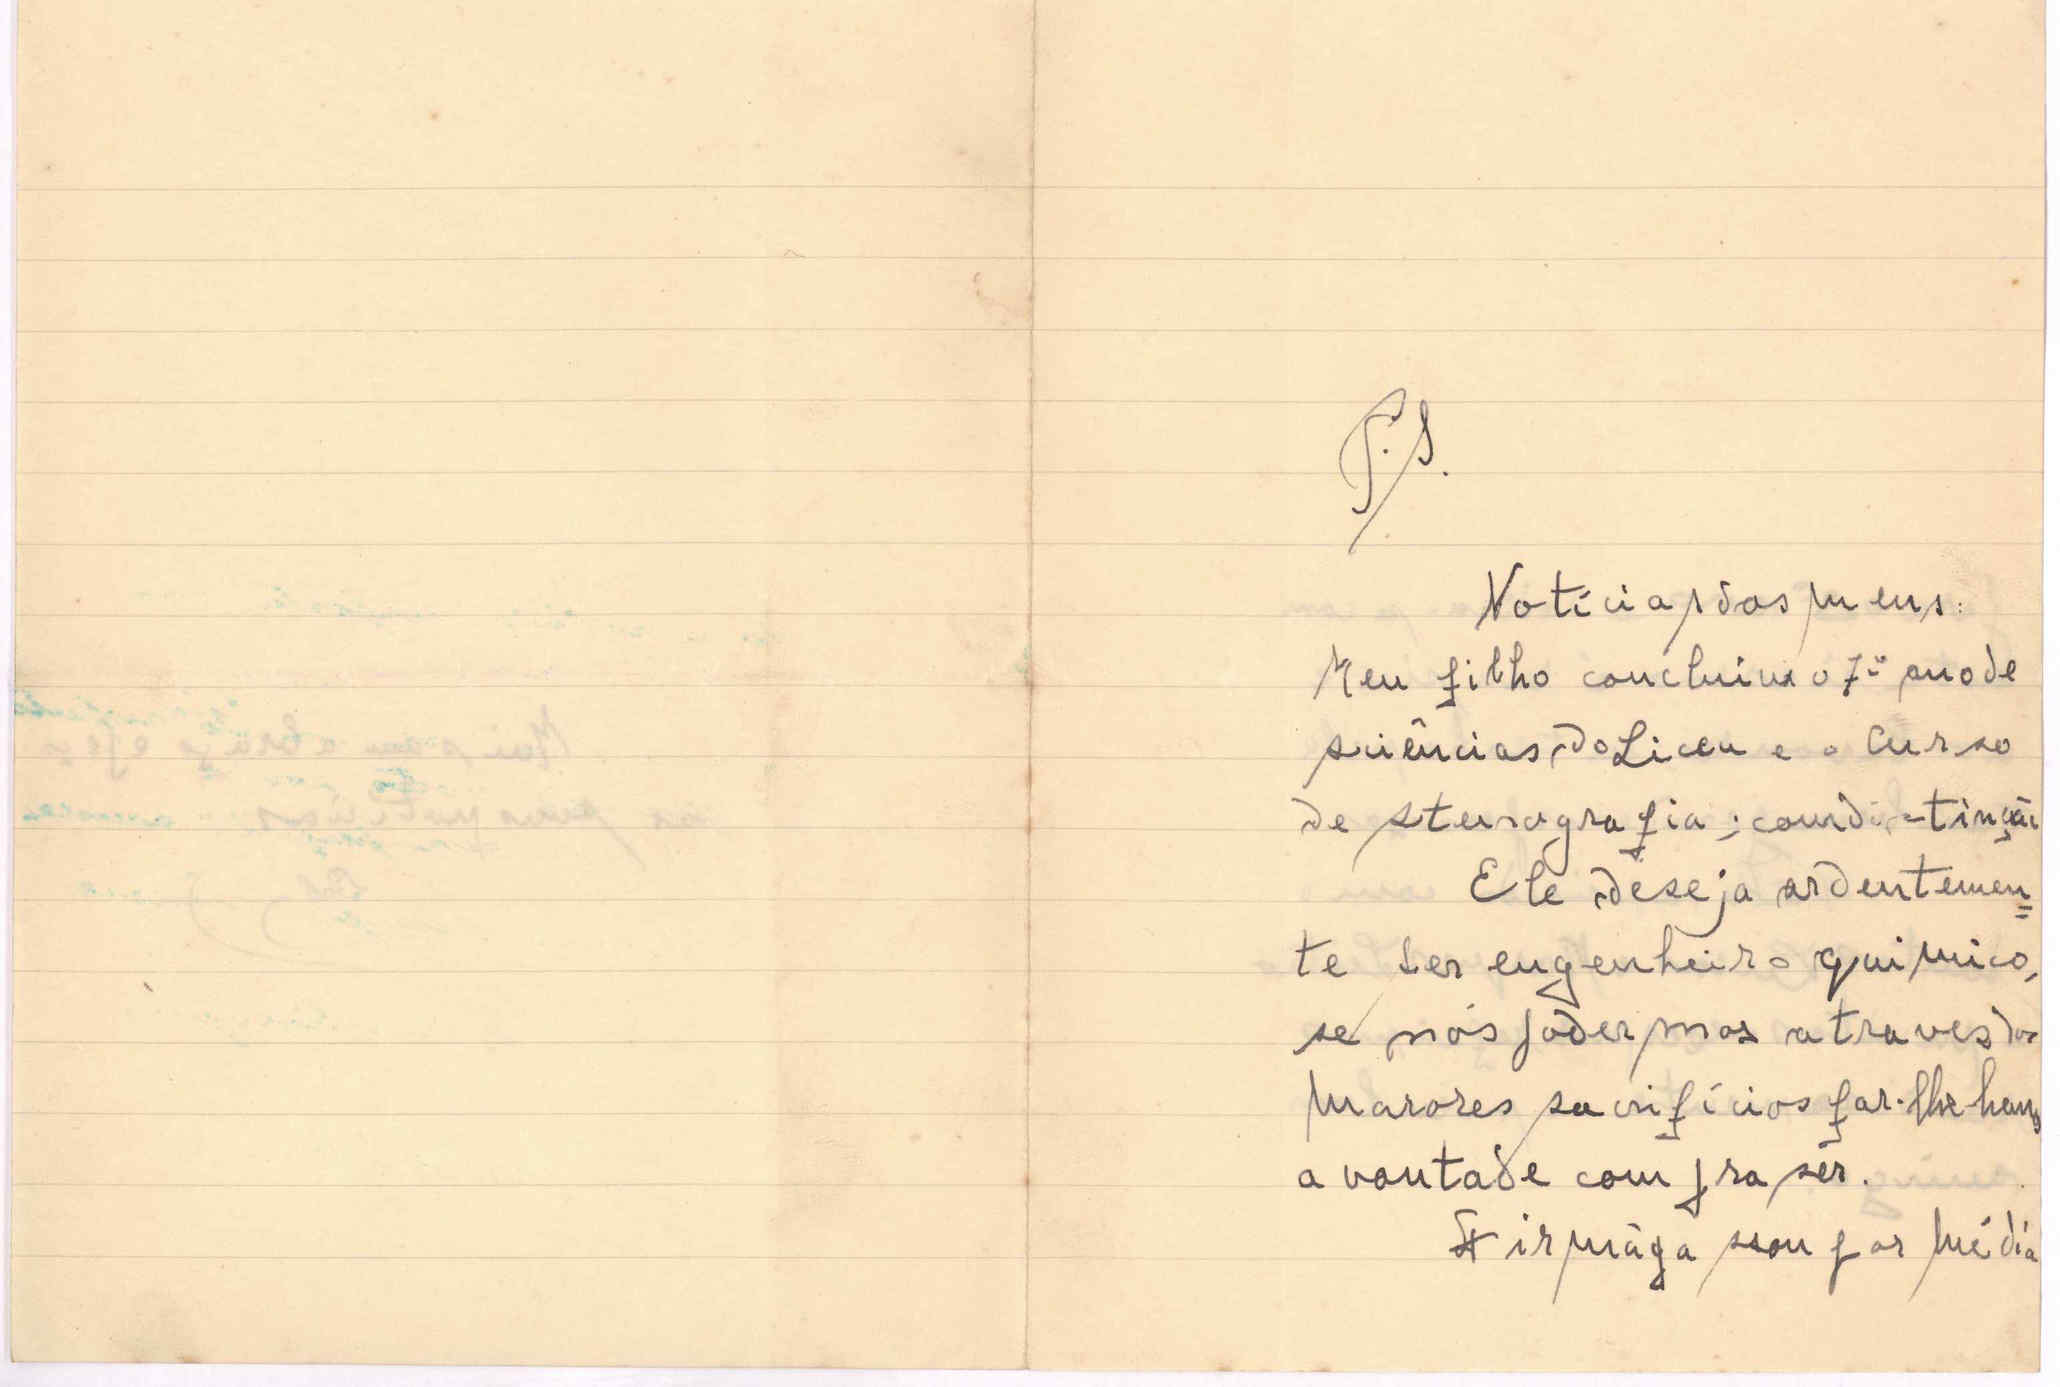 P.S.
Notícias dos meus:
Meu filho concluiu o 7º ano de
sciências do Liceu e o curso
de stenografia; com distinção
Ele deseja ardentemen=
te ser engenheiro quimico,
se nós podermos atraves dos
maiores sacrifícios far-lhe-hemos
a vontade com prasêr.
A irmã passou por média